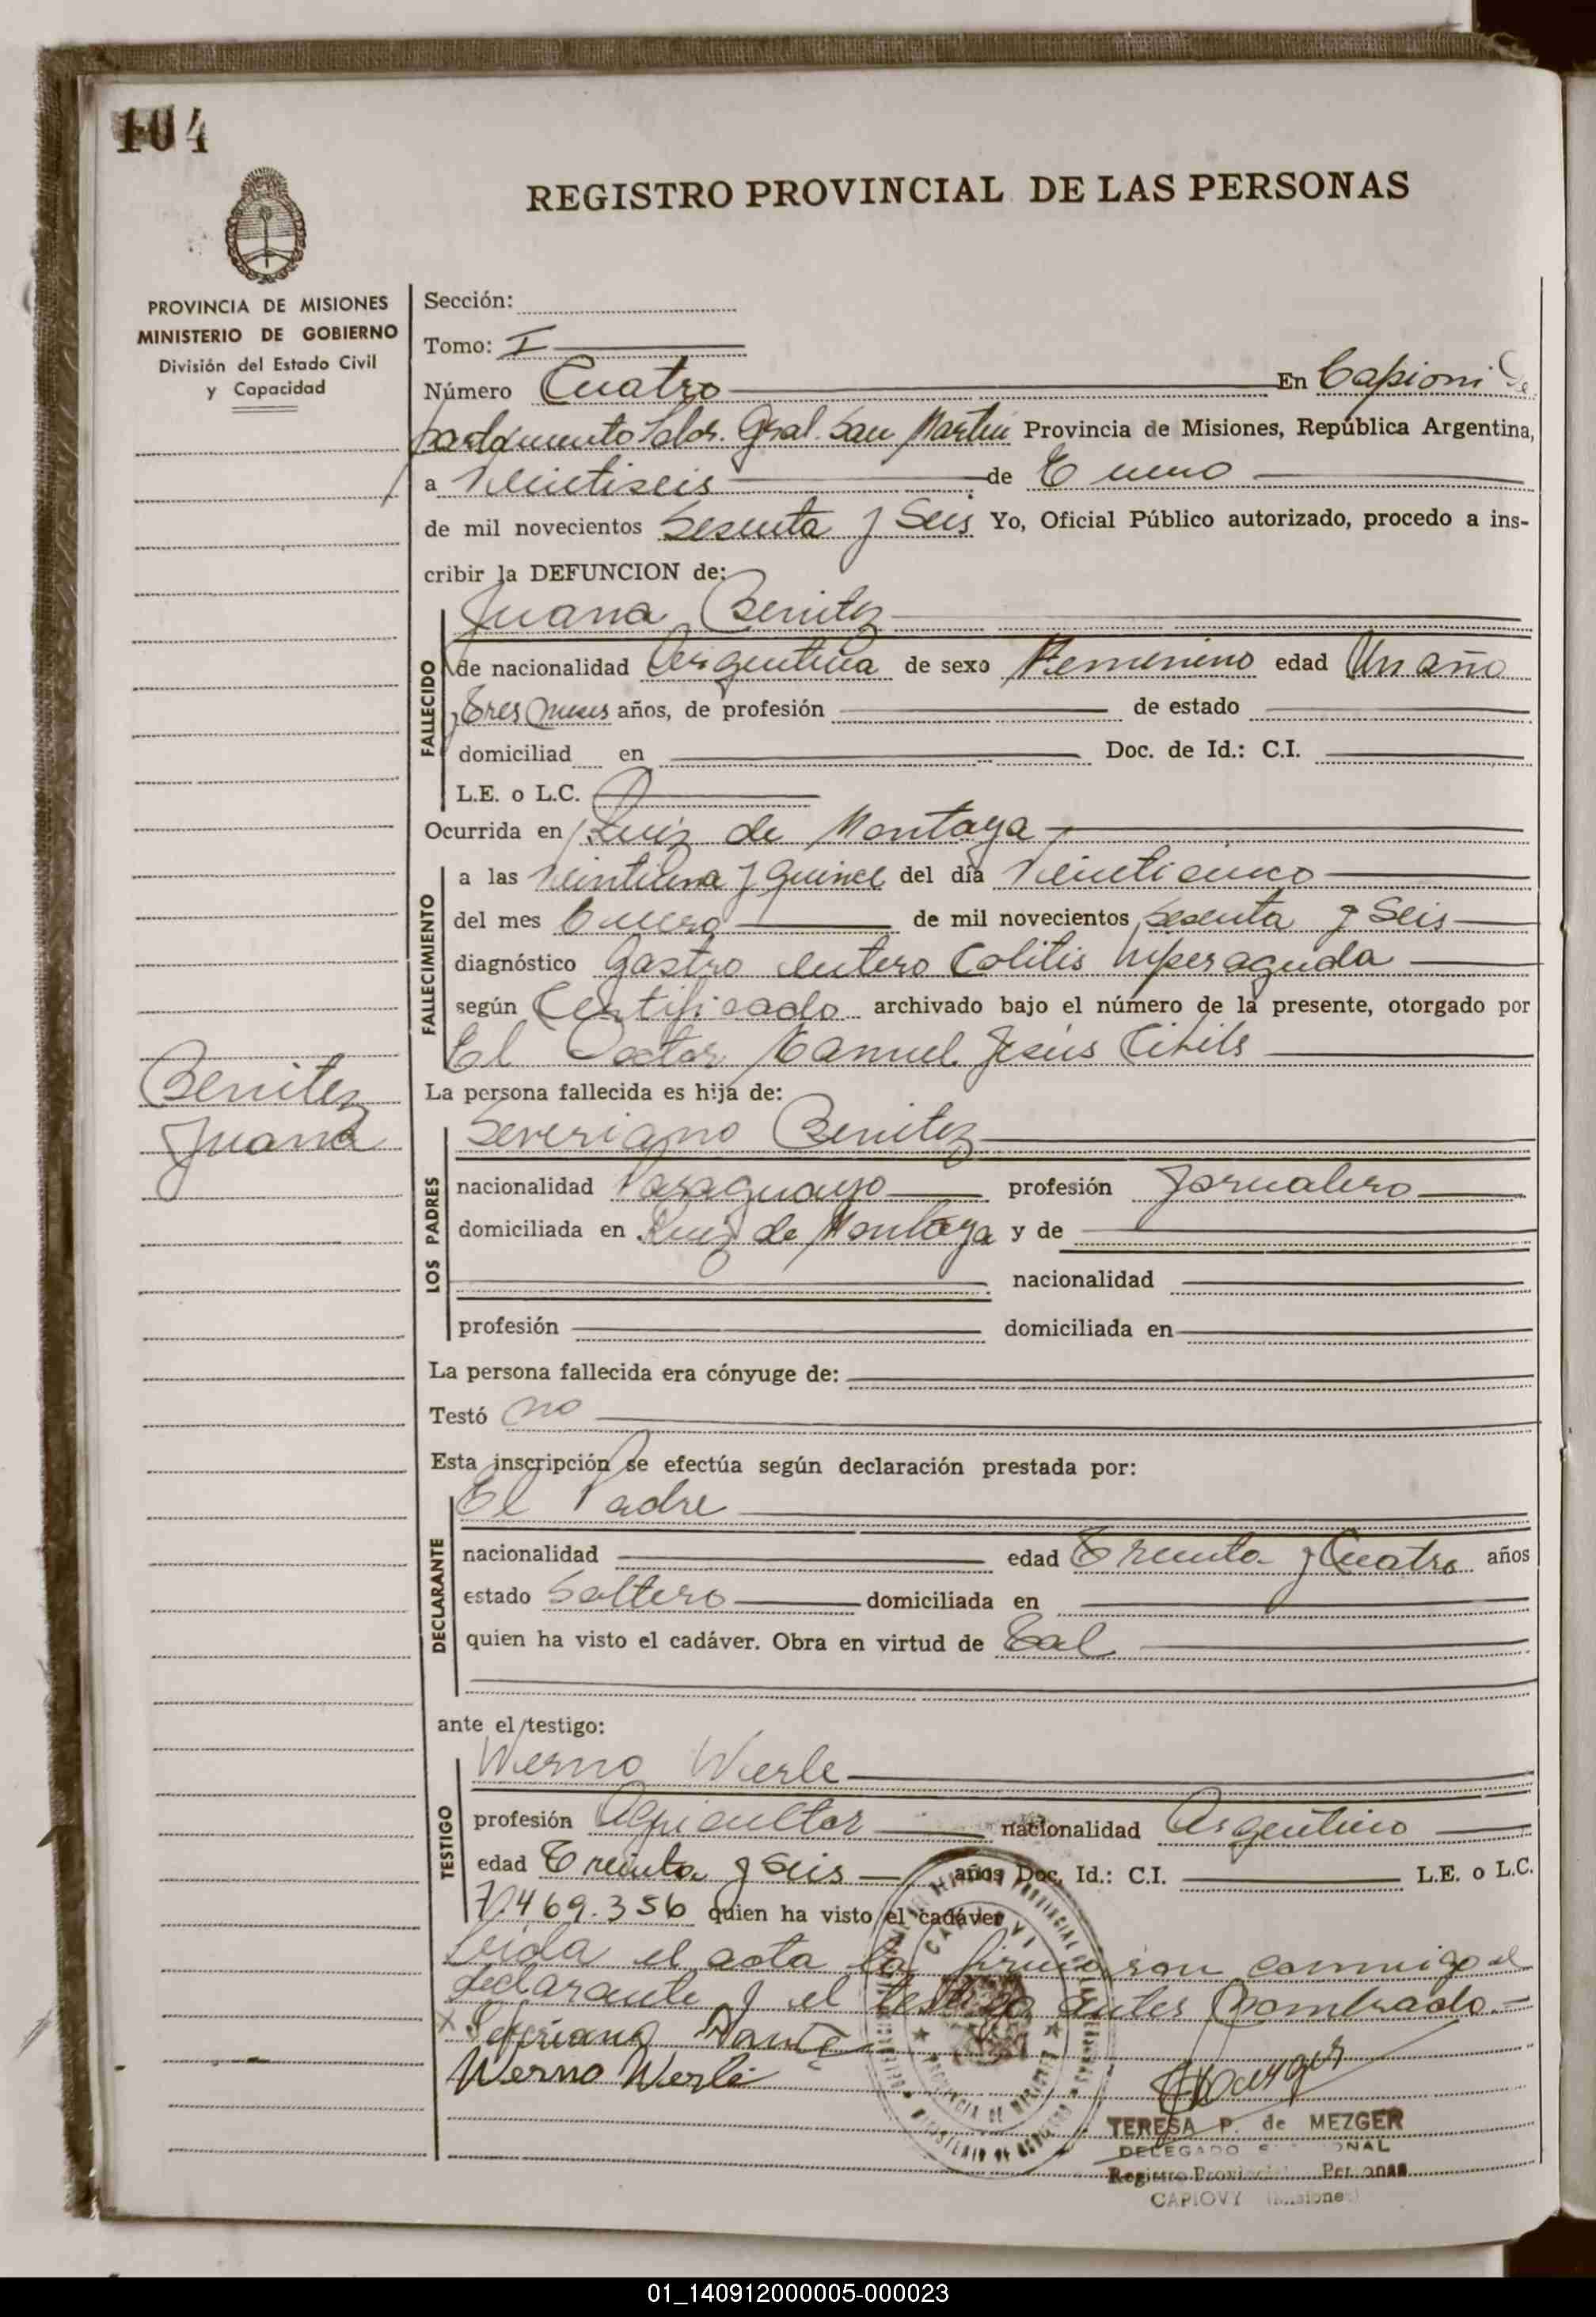 104
REGISTRO PROVINCIAL DE LAS PERSONAS
PROVINCIA DE MISIONES
MINISTERIO DE GOBIERNO
División del Estado Civil
y Capacidad
Sección:
Tomo: I
Número Cuatro En Capiovi De
partamento Ldor. Gral. San Martin Provincia de Misiones, República Argentina,
a Veintiseis de Enero
de mil novecientos Sesenta y Seis Yo, Oficial Público autorizado, procedo a ins-
cribir la DEFUNCION de:
Juana Benitez
FALLECIDO
de nacionalidad Argentina de sexo Femenino edad Un año
y Tres Meses años, de profesión de estado
domiciliad en Doc. de Id.: C.I.
L.E. o L.C.
Ocurrida en Ruiz de Montoya
FALLECIMIENTO
a las Veintiuna y quince del día Veinticinco
del mes Enero de mil novecientos Sesenta y Seis
diagnóstico Gastro entero Colitis hiperaguda
según Certificado archivado bajo el número de la presente, otorgado por
El Doctor Manuel Jesús
Benitez
Juana
La persona fallecida es hija de:
LOS PADRES
Severiano Benitez
nacionalidad Paraguayo profesión Jornalero
domiciliada en Ruiz de Montoya y de
nacionalidad
profesión domiciliada en
La persona fallecida era cónyuge de:
Testó no
Esta inscripción se efectúa según declaración prestada por:
DECLARANTE
El Padre
nacionalidad edad Treinta y Cuatro años
estado Soltero domiciliada en
quien ha visto el cadáver. Obra en virtud de Tal
ante el testigo:
TESTIGO
Werno Werle
profesión Agricultor nacionalidad Argentino
edad Treinta y Seis años Doc. Id.: C.I. L.E. o L.C.
7.469.356 quien ha visto el cadáver
Leida el acta la firmaron conmigo el
declarante y el testigo antes nombrado.=
Werno Werle
TERESA P. de MEZGER
DELEGADO
Registro Provincial Personas
CAPIOVY (Misiones)
01_140912000005-000023